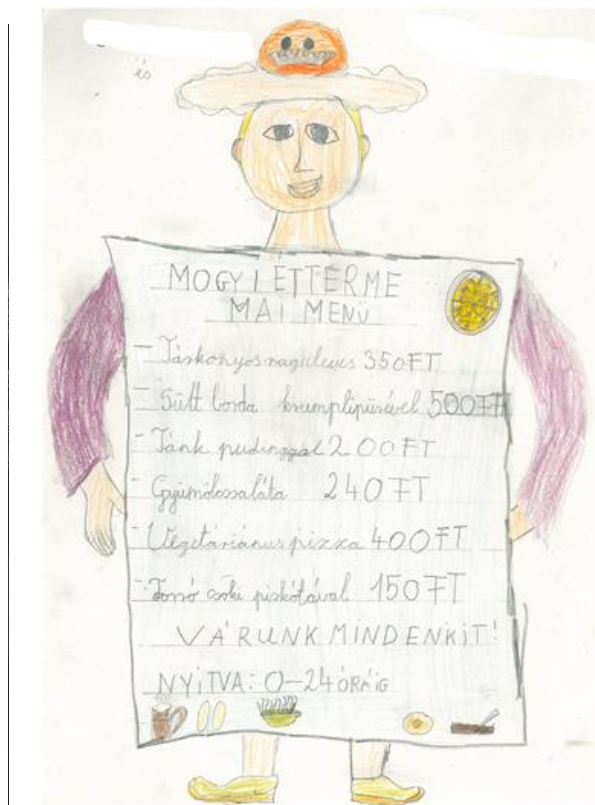 és
MOGYI ETTERME
MAI MENÜ
- Tárkonyos raguleves 350 FT
- Sült borda krumplipürével 500 FT
- Fánk pudinggal 200 FT
- Gyümölcssaláta 240 FT
- Vegetáriánus pizza 400 FT
- Forró csoki piskótával 150 FT
VÁRUNK MINDENKIT!
NYITVA: 0-24 ÓRÁIG